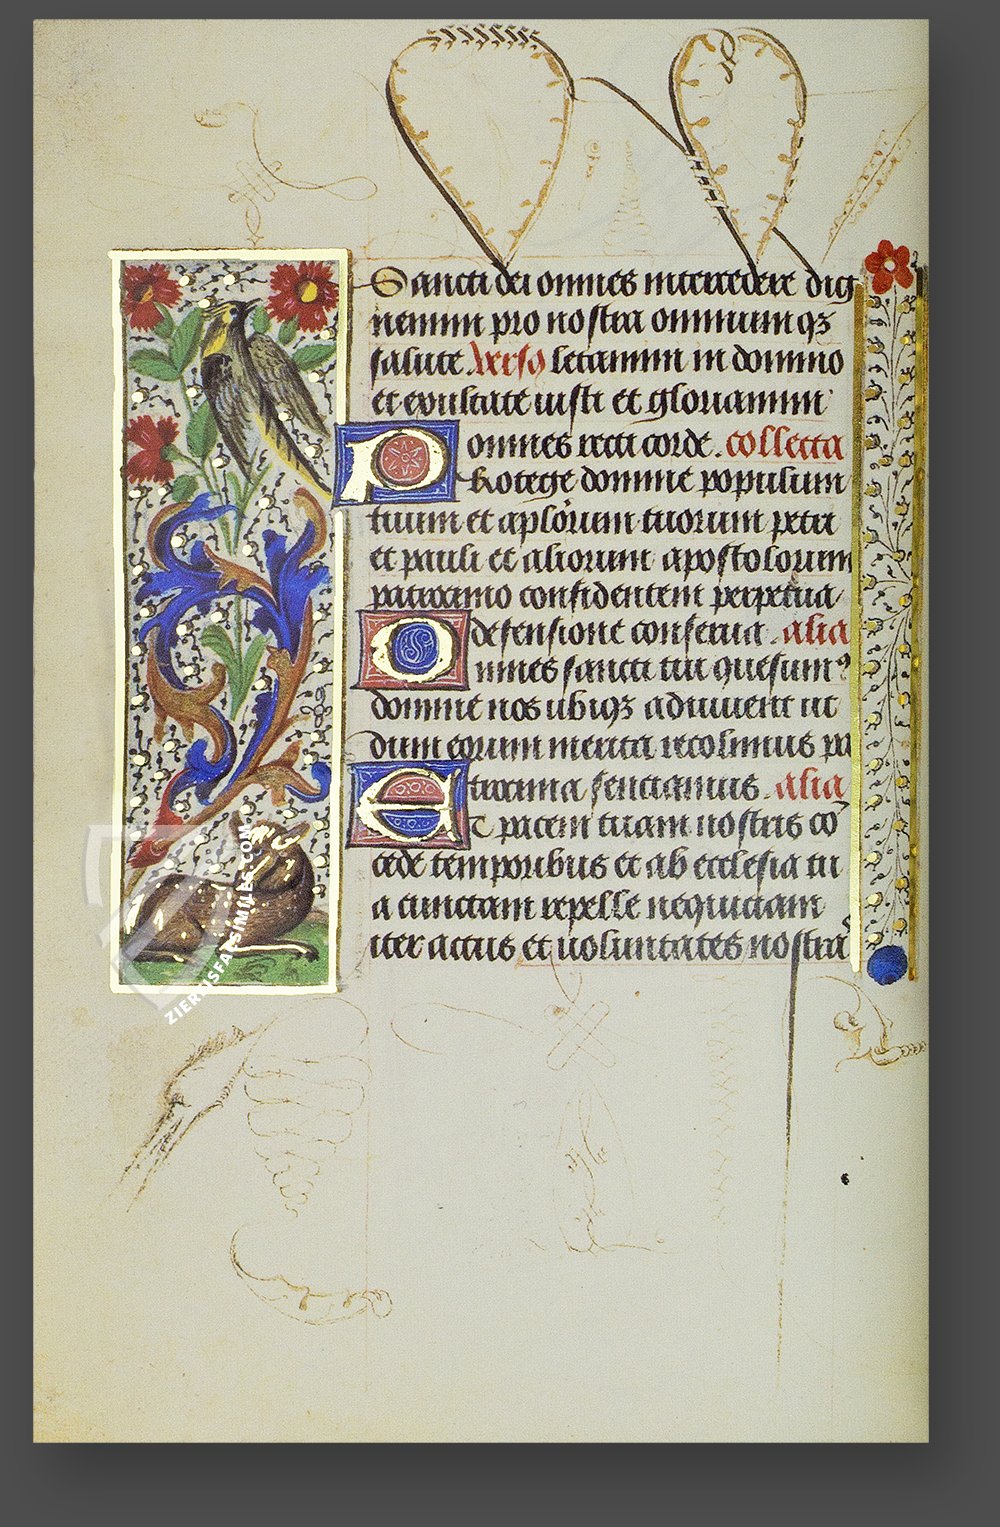 Sancti dei omnes intercedere dig
nemini pro nostra omnium qꝫ
salute Verso letamini in domino
et exultate iusti et gloriamini
omnes recti corde . collecta
Protege domine populum
tuum et aplōrum tuorum petri
et pauli et aliorum apostolorum
patrocinio confidentem perpetua
defensione conserua . alia
Omnes sancti tui quesumꝰ
domine nos ubiqꝫ adiuuent ut
dum eorum merita recolimus pa
trocinia senciamus . alia
Et pacem tuam nostris cō
cede temporibus et ab ecclesia tu
a cunctam repelle nequiciam
iter actus et uoluntates nostra
ZIEREISFACSIMILES.COM